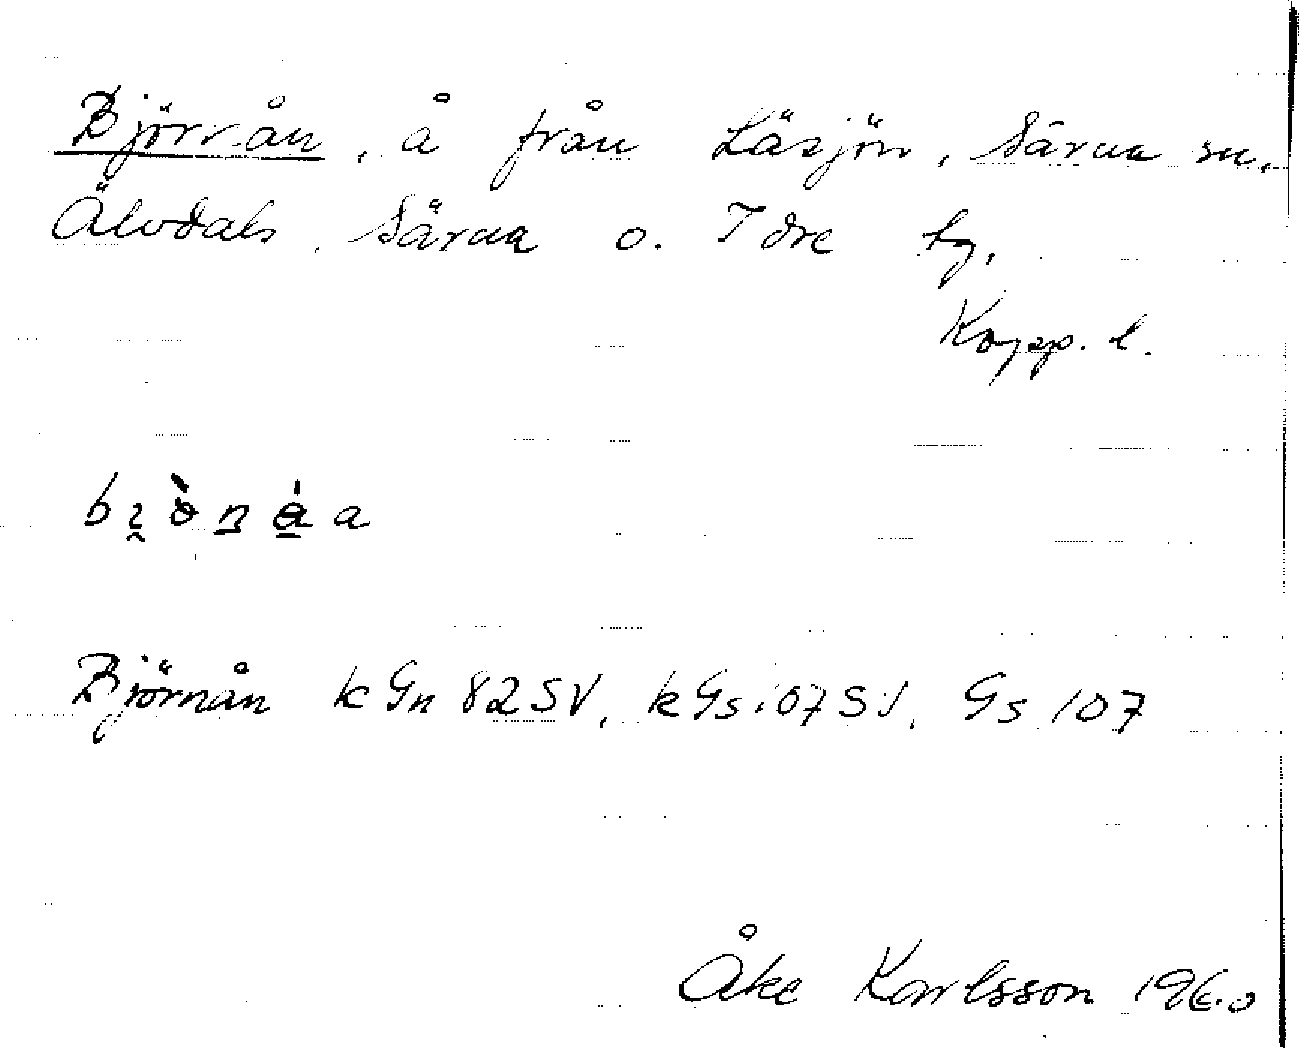 Björnån, å från Läsjön, Särna sn,
Älvdals, Särna o. Idre tg,
Kopp. l.
Björnån k Gn 82 SV, k Gs 107 SV, Gs 107
Åke Karlsson 1960